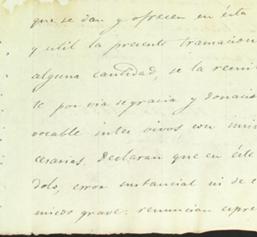 que se dan y ofrecen en ésta
y util la presente transacion
alguna cantidad, se la remi
te por via de gracia y donacio
vocable inter vivos, con insi
cesarias. Declaran que en éste
dolo, error sustancial ni de c
mico grave: renuncian espre